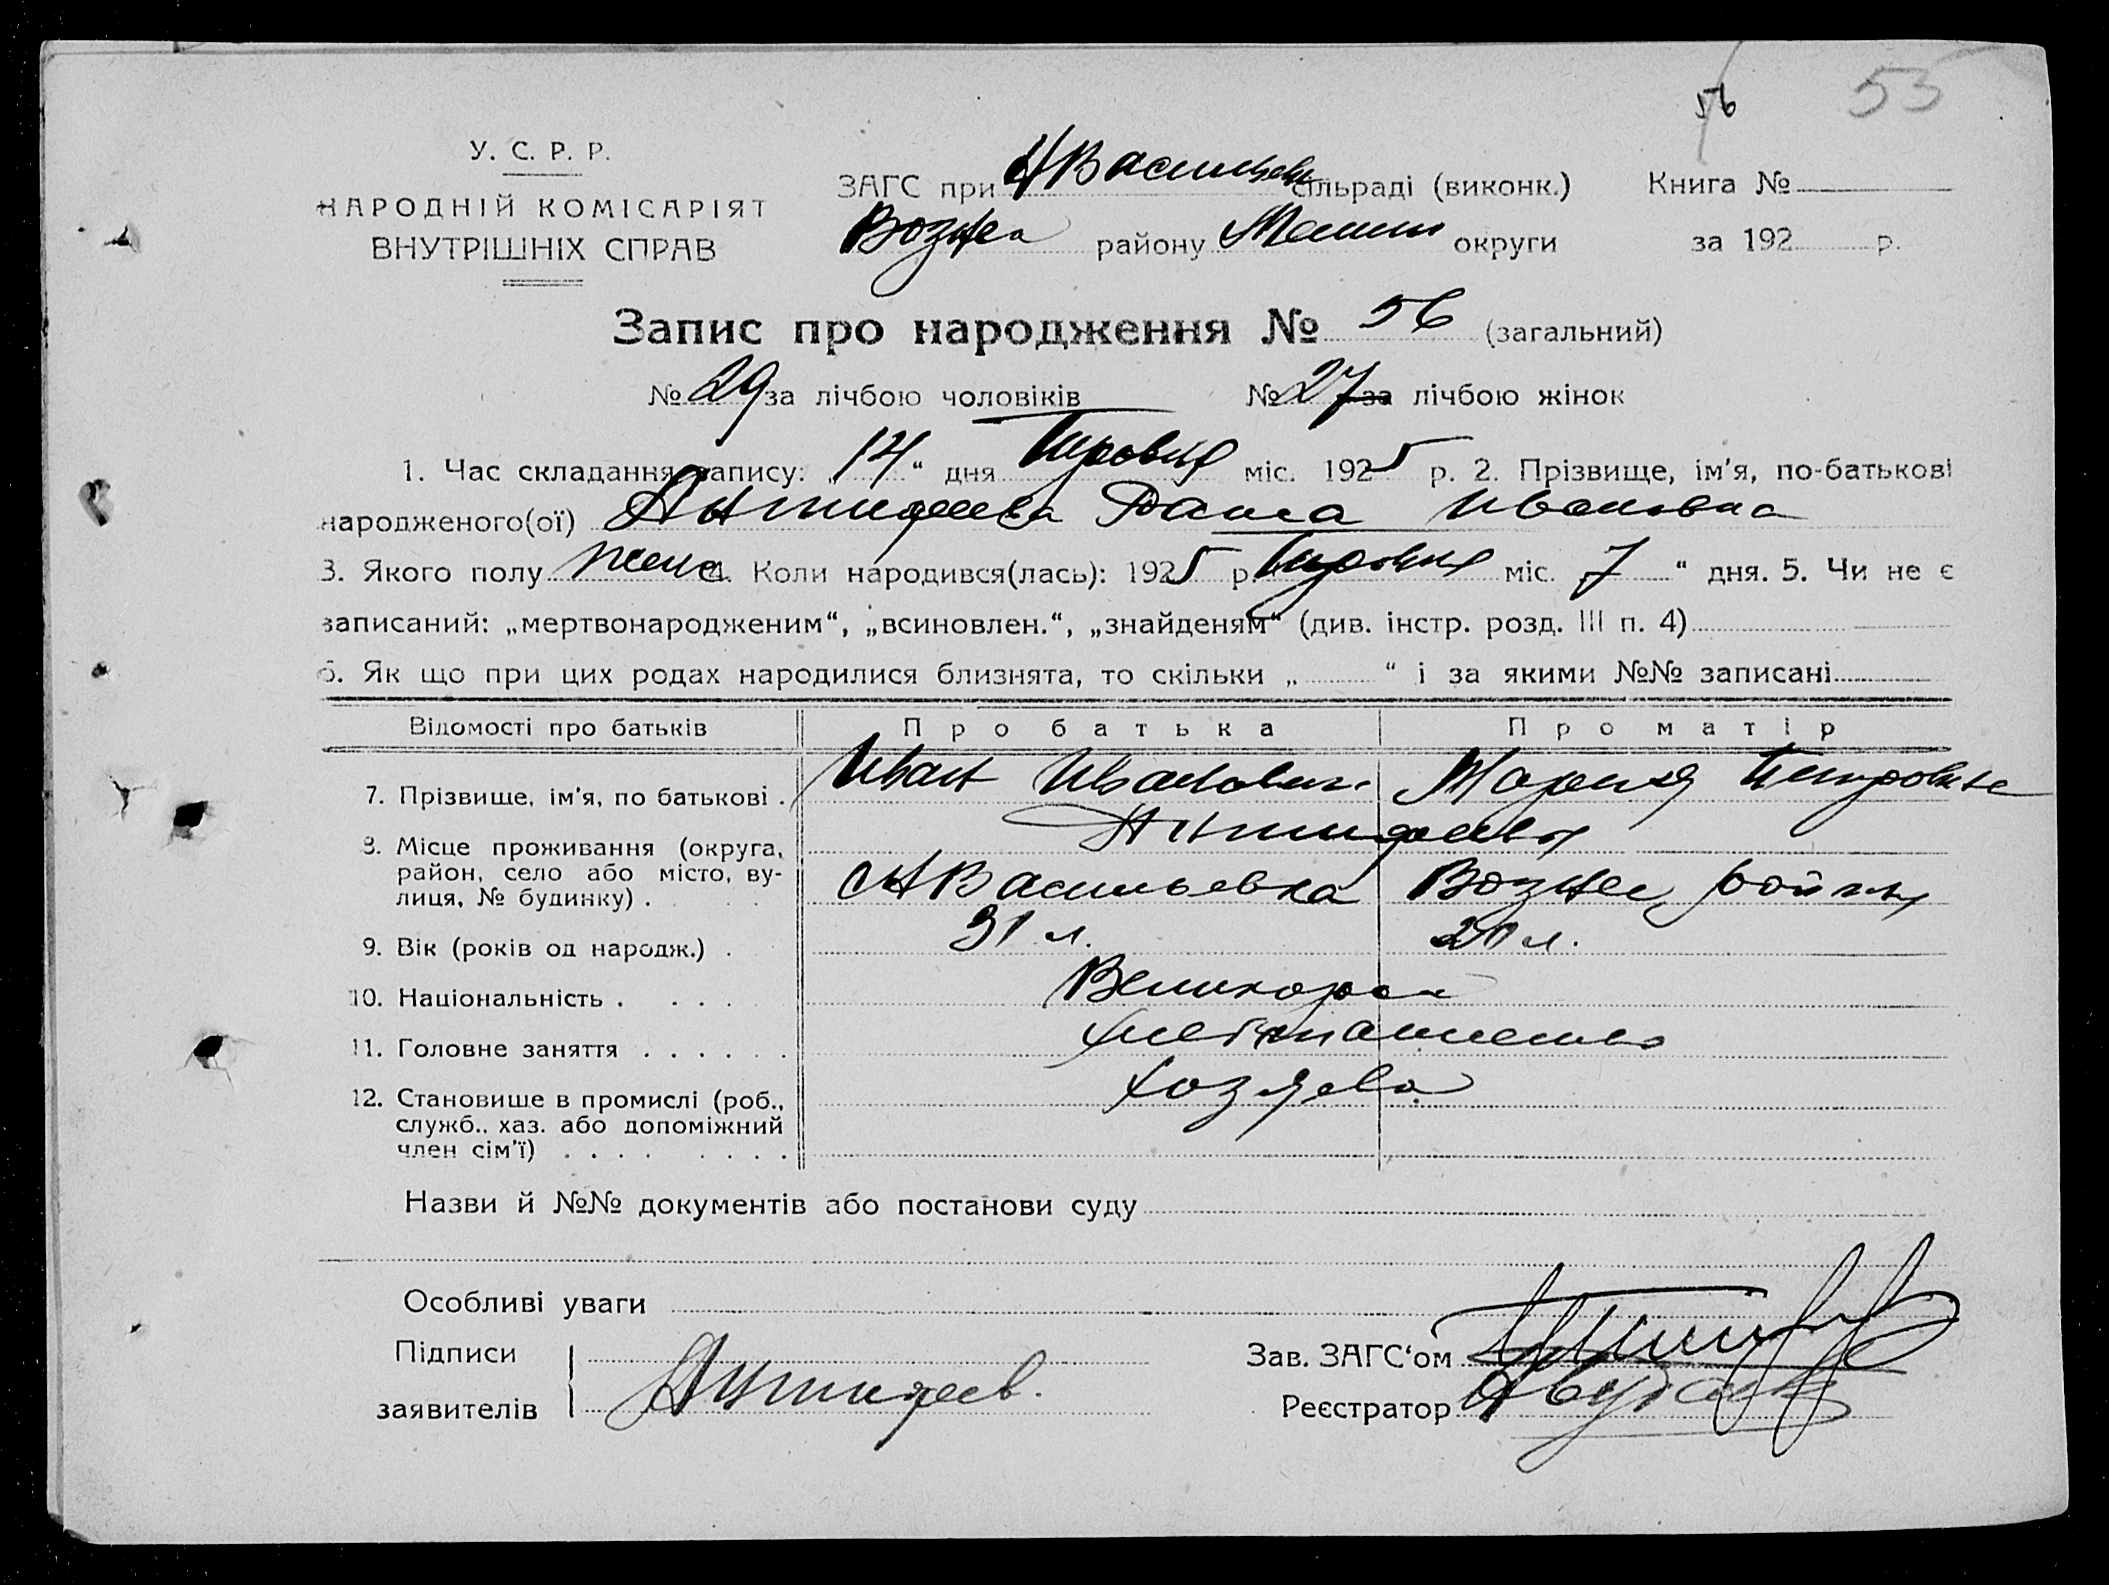 56 55
У. С. Р. Р.
НАРОДНІЙ КОМІСАРІЯТ
ВНУТРІШНІХ СПРАВ
ЗАГС при НВасильев сільраді (виконк.) Книга №
Вознес району округи за 192 р.
Запис про народження № 56 (загальний)
№ 29 за лічбою чоловіків № 27 за лічбою жінок
1. Час складання запису: „14“ дня міс. 1925 р. 2. Прізвище, ім'я, по-батькові
народженого(ої) Антифеева Раиса Ивановна
3. Якого полу жено 4. Коли народився(лась): 1925 р. міс. „7“ дня. 5. Чи не є
записаний: „мертвонародженим“, „всиновлен.“, „знайденям“ (див. інстр. розд. III п. 4)
6. Як що при цих родах народилися близнята, то скільки „ “ і за якими №№ записані
Відомості про батьків Про батька Про матір
7. Прізвище, ім'я, по батькові . Иван Иванович Мария Петровна
Антифеевы
8. Місце проживання (округа,
район, село або місто, ву-
лиця, № будинку) . НВасильевка Вознес района
9. Вік (років од народж.) . 31 л. 20 л.
10. Національність . . . . Великоросы
11. Головне заняття . . . . . . хлебопашество
12. Становище в промислі (роб.,
служб.. хаз. або допоміжний
член сім'ї) . . . . . . . . хозяева
Назви й №№ документів або постанови суду
Особливі уваги
Підписи
заявителів Антифеев.
Зав. ЗАГС‘ом
Реєстратор